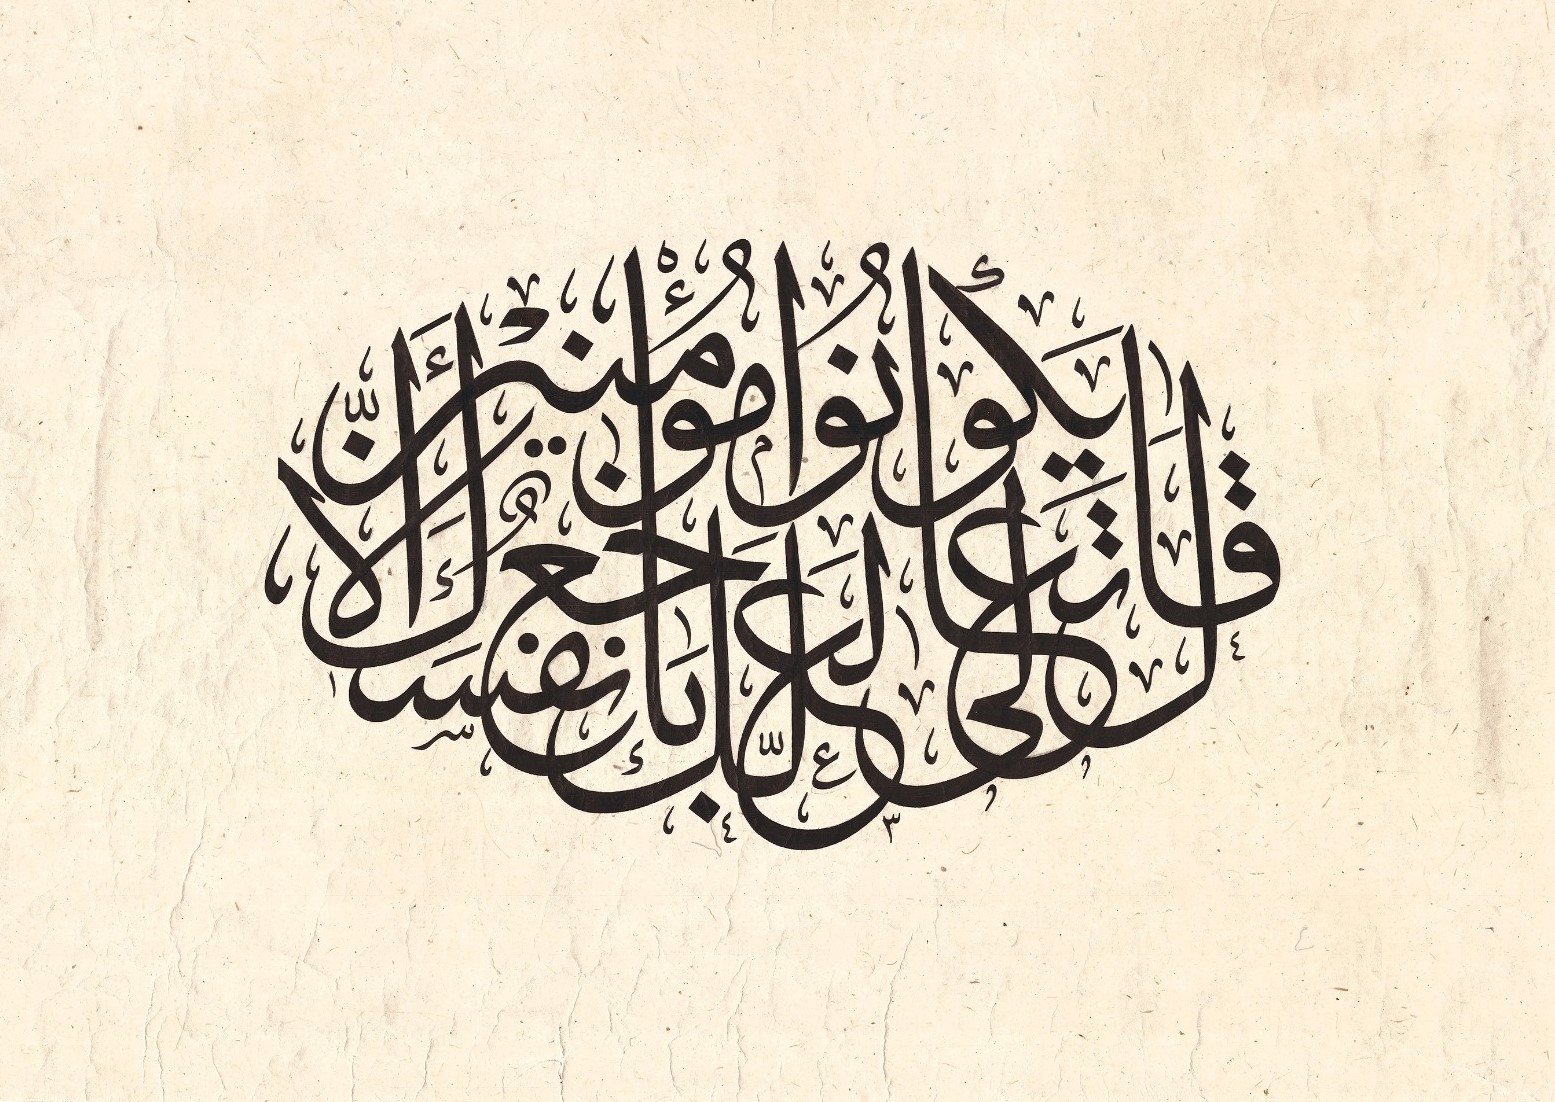 قال تعالى لعلك باخع نفسك ألا يكونوا مؤمنين